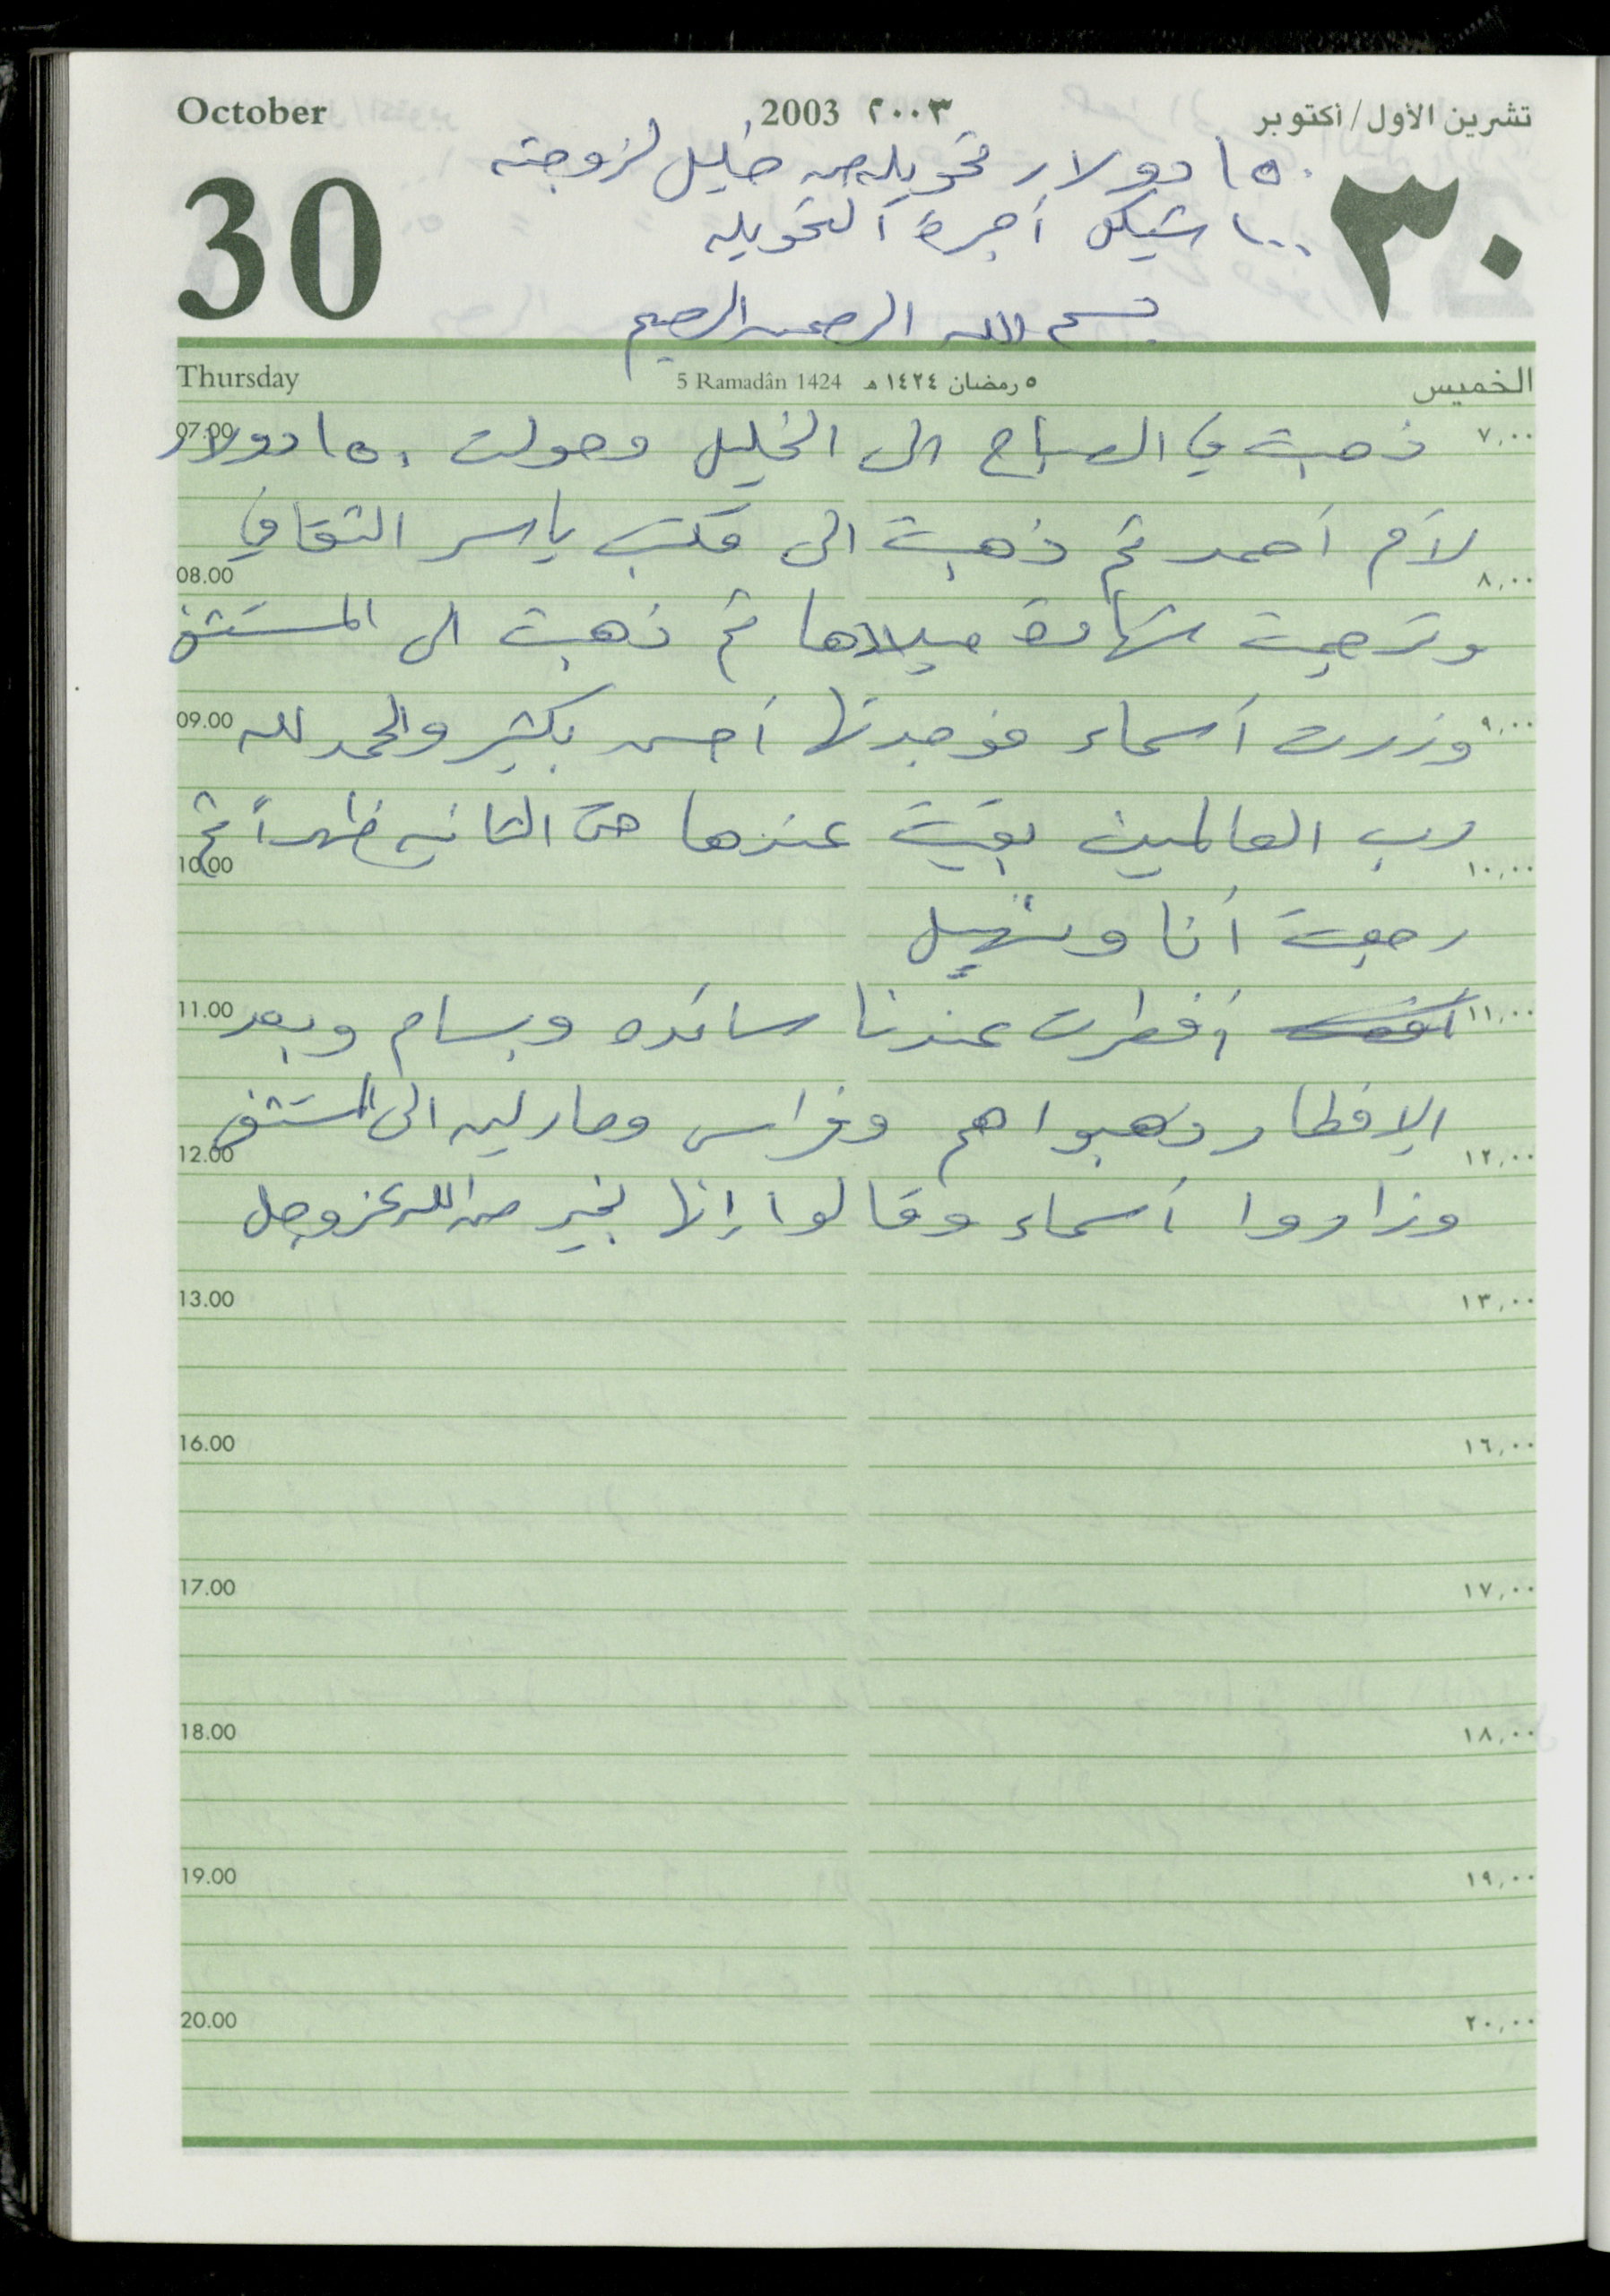 October 2003 ٢٠٠٣ تشرين الأول/أكتوبر
30 ٣٠
١٥٠ دولار تحويله من خليل لزوجته
١٠٠ شيكل أجرة التحويله
بسم الله الرحمن الرحيم
Thursday 5 Ramadân 1424 ٥ رمضان ١٤٢٤ هـ الخميس
07.00 ذهبت في الصباح الى الخليل وحولت ١٥٠ دولار ٧,٠٠
لأم أحمد ثم ذهبت الى مكتب ياسر الثقافي
08.00 ٨,٠٠
وترجمت شهادة ميلادها ثم ذهبت الى المستشفى
09.00 وزرت أسماء فوجدتها أحسن بكثير والحمد لله ٩,٠٠
رب العالمين بقيت عندها حتى الثانيه ظهراً ثم
10.00 ١٠,٠٠
رجعت أنا وسهيل
11.00 أفطرت عندنا سائده وبسام وبعد ١١,٠٠
الإفطار ذهبوا هم وفراس ومارلين الى المستشفى
12.00 ١٢,٠٠
وزاروا أسماء وقالوا إنها بخير من الله عز وجل
13.00 ١٣,٠٠
16.00 ١٦,٠٠
17.00 ١٧,٠٠
18.00 ١٨,٠٠
19.00 ١٩,٠٠
20.00 ٢٠,٠٠